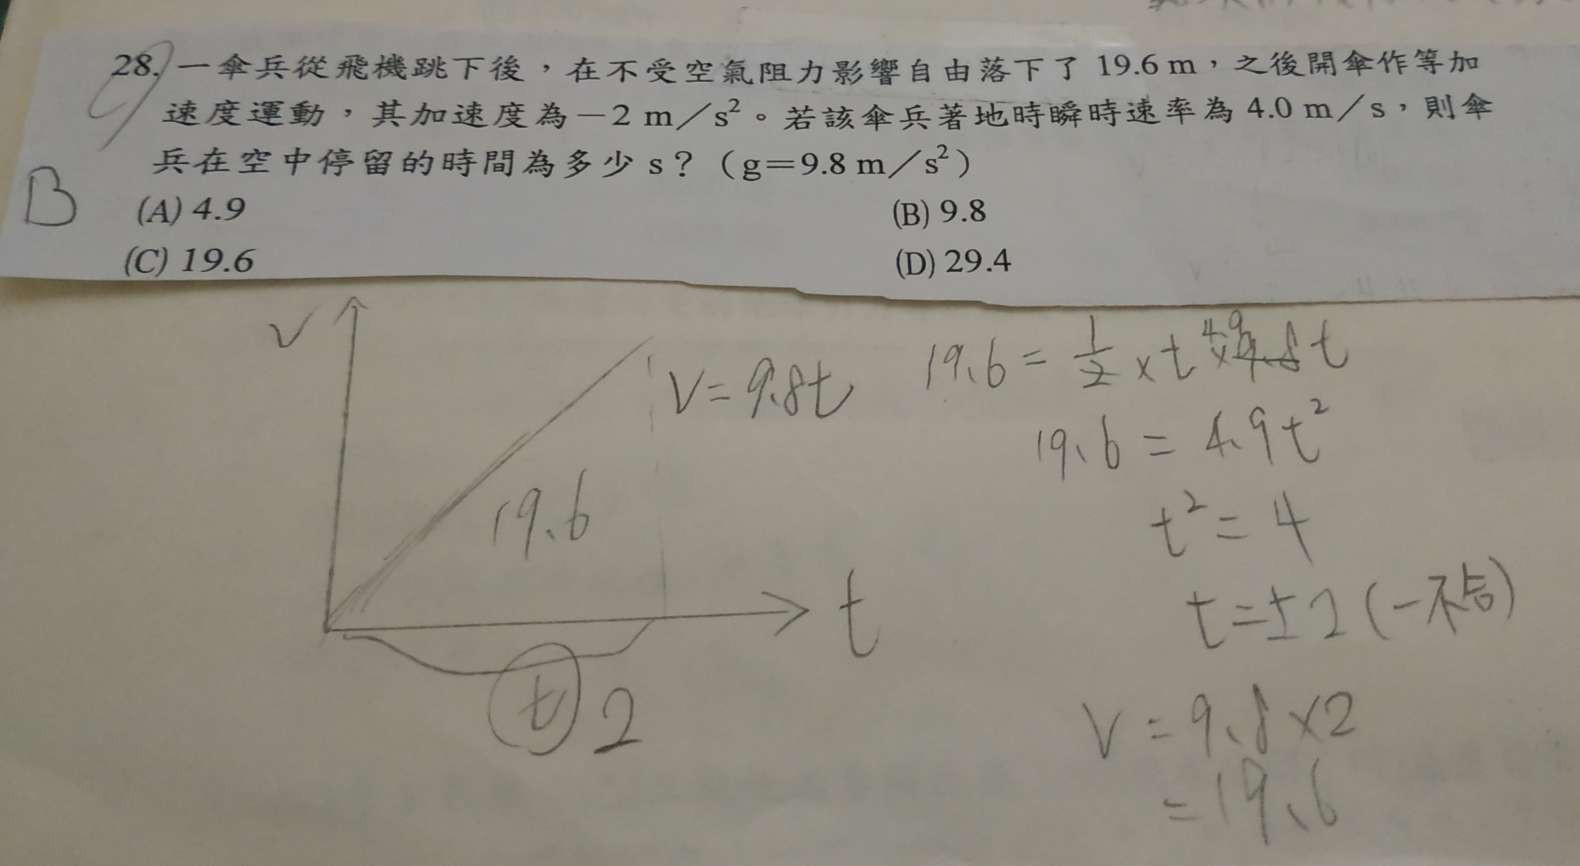 28. 一傘兵從飛機跳下後，在不受空氣阻力影響自由落下了 19.6 m，之後開傘作等加
速度運動，其加速度為－2 m／s²。若該傘兵著地時瞬時速率為 4.0 m／s，則傘
兵在空中停留的時間為多少 s？（g＝9.8 m／s²）
B
(A) 4.9 (B) 9.8
(C) 19.6 (D) 29.4
V
V=9.8t
19.6
t
t 2
19.6 = 1/2 × t × 9.8t
4.9
19.6 = 4.9t²
t² = 4
t=±2 (－不合)
V = 9.8×2
=19.6